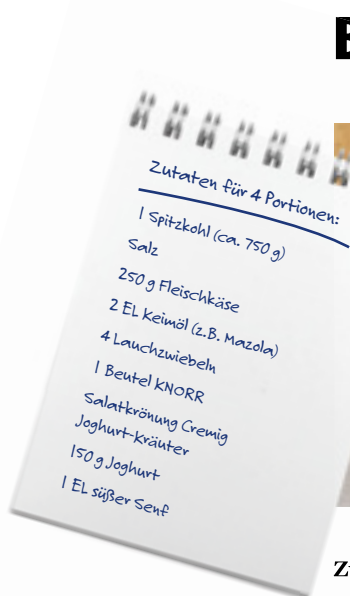 Zutaten für 4 Portionen:
1 Spitzkohl (ca. 750 g)
Salz
250 g Fleischkäse
2 EL Keimöl (z.B. Mazola)
4 Lauchzwiebeln
1 Beutel KNORR
Salatkrönung Cremig
Joghurt-Kräuter
150 g Joghurt
1 EL süßer Senf